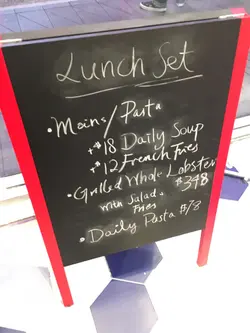 Lunch Set
• Mains / Pasta
+$18 Daily Soup
+$12 French Fries
• Grilled Whole Lobster
with Salad + $348
Fries
• Daily Pasta $78